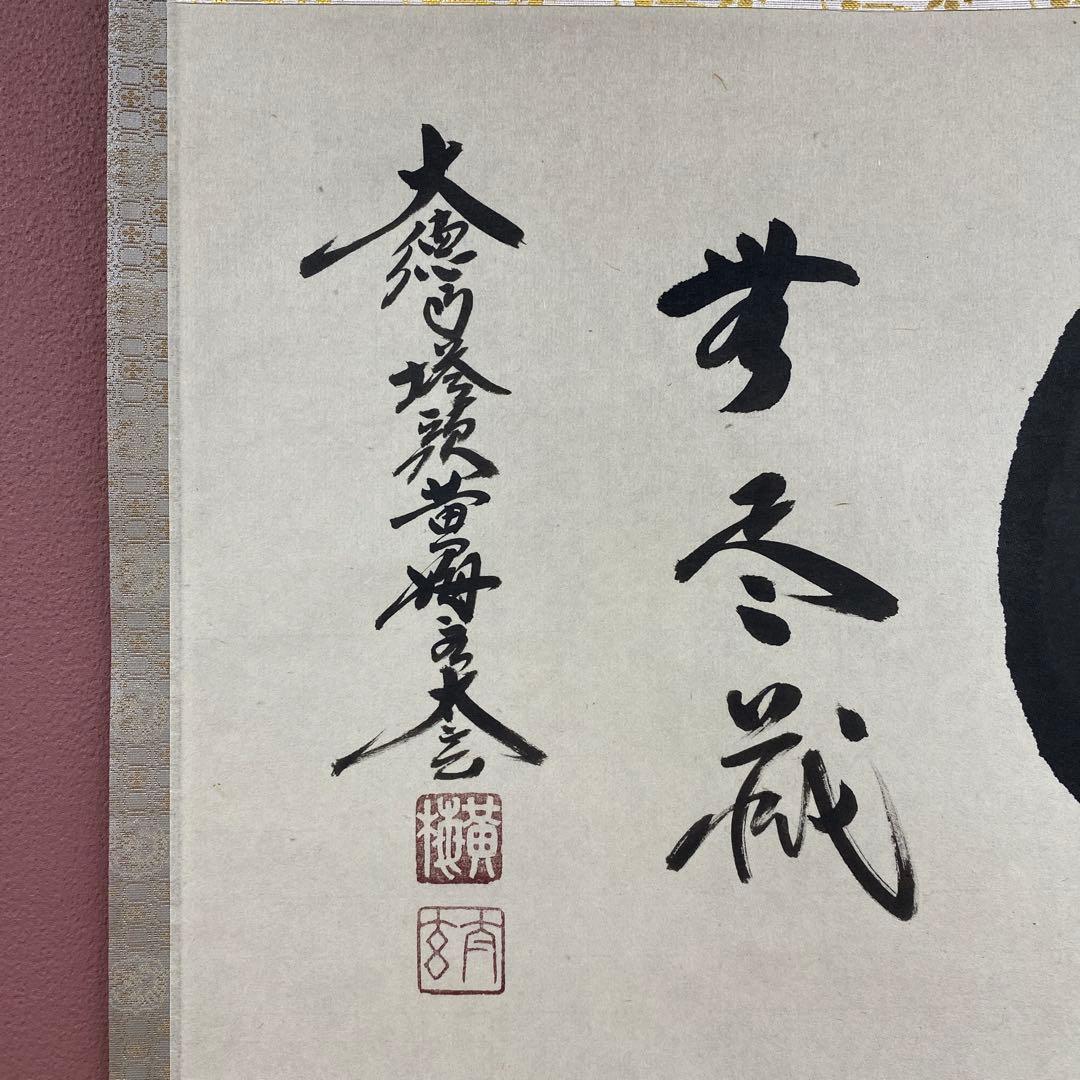 無尽蔵
大徳寺塔頭黄梅太玄
黄梅
太玄